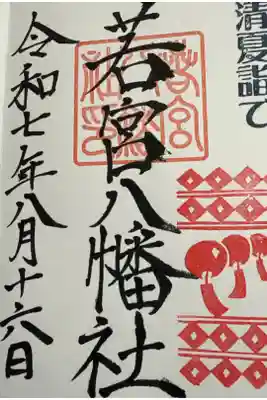 清夏詣で
若宮八幡社
令和七年八月十六日